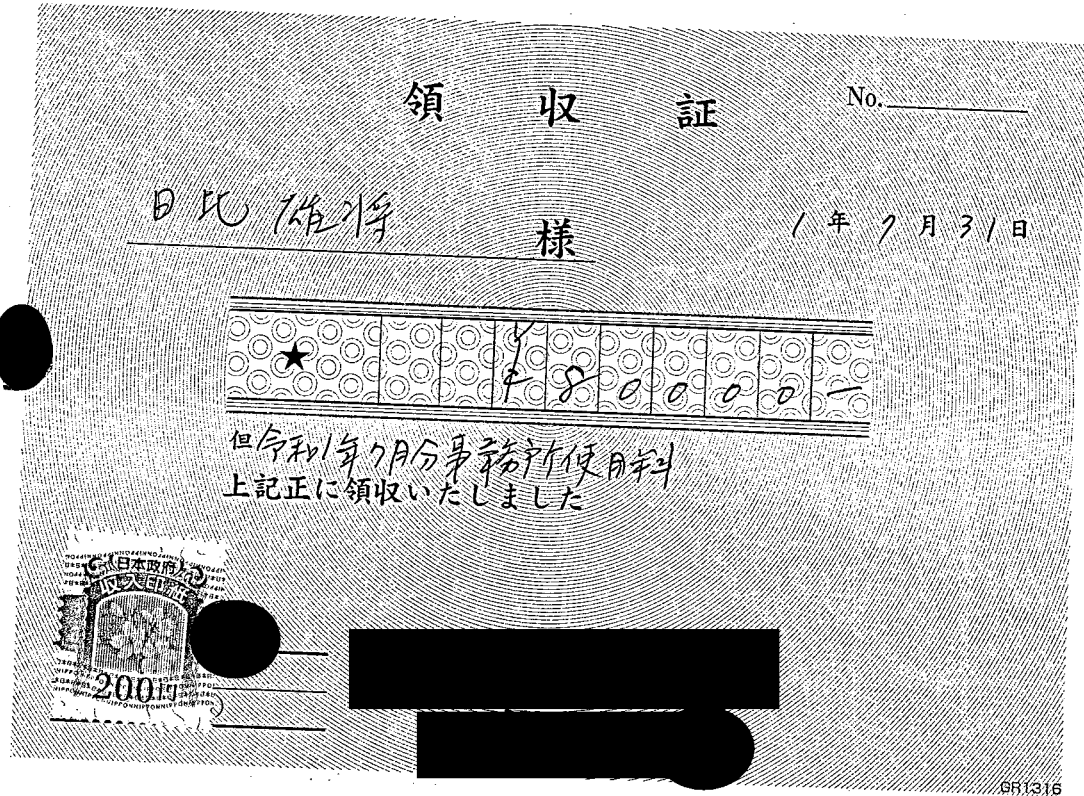 領収証
No.
日比 雄将 様
1年7月31日
★ ¥80000-
但令和1年7月分事務所使用料
上記正に領収いたしました
日本政府
収入印紙
200円
GR1316